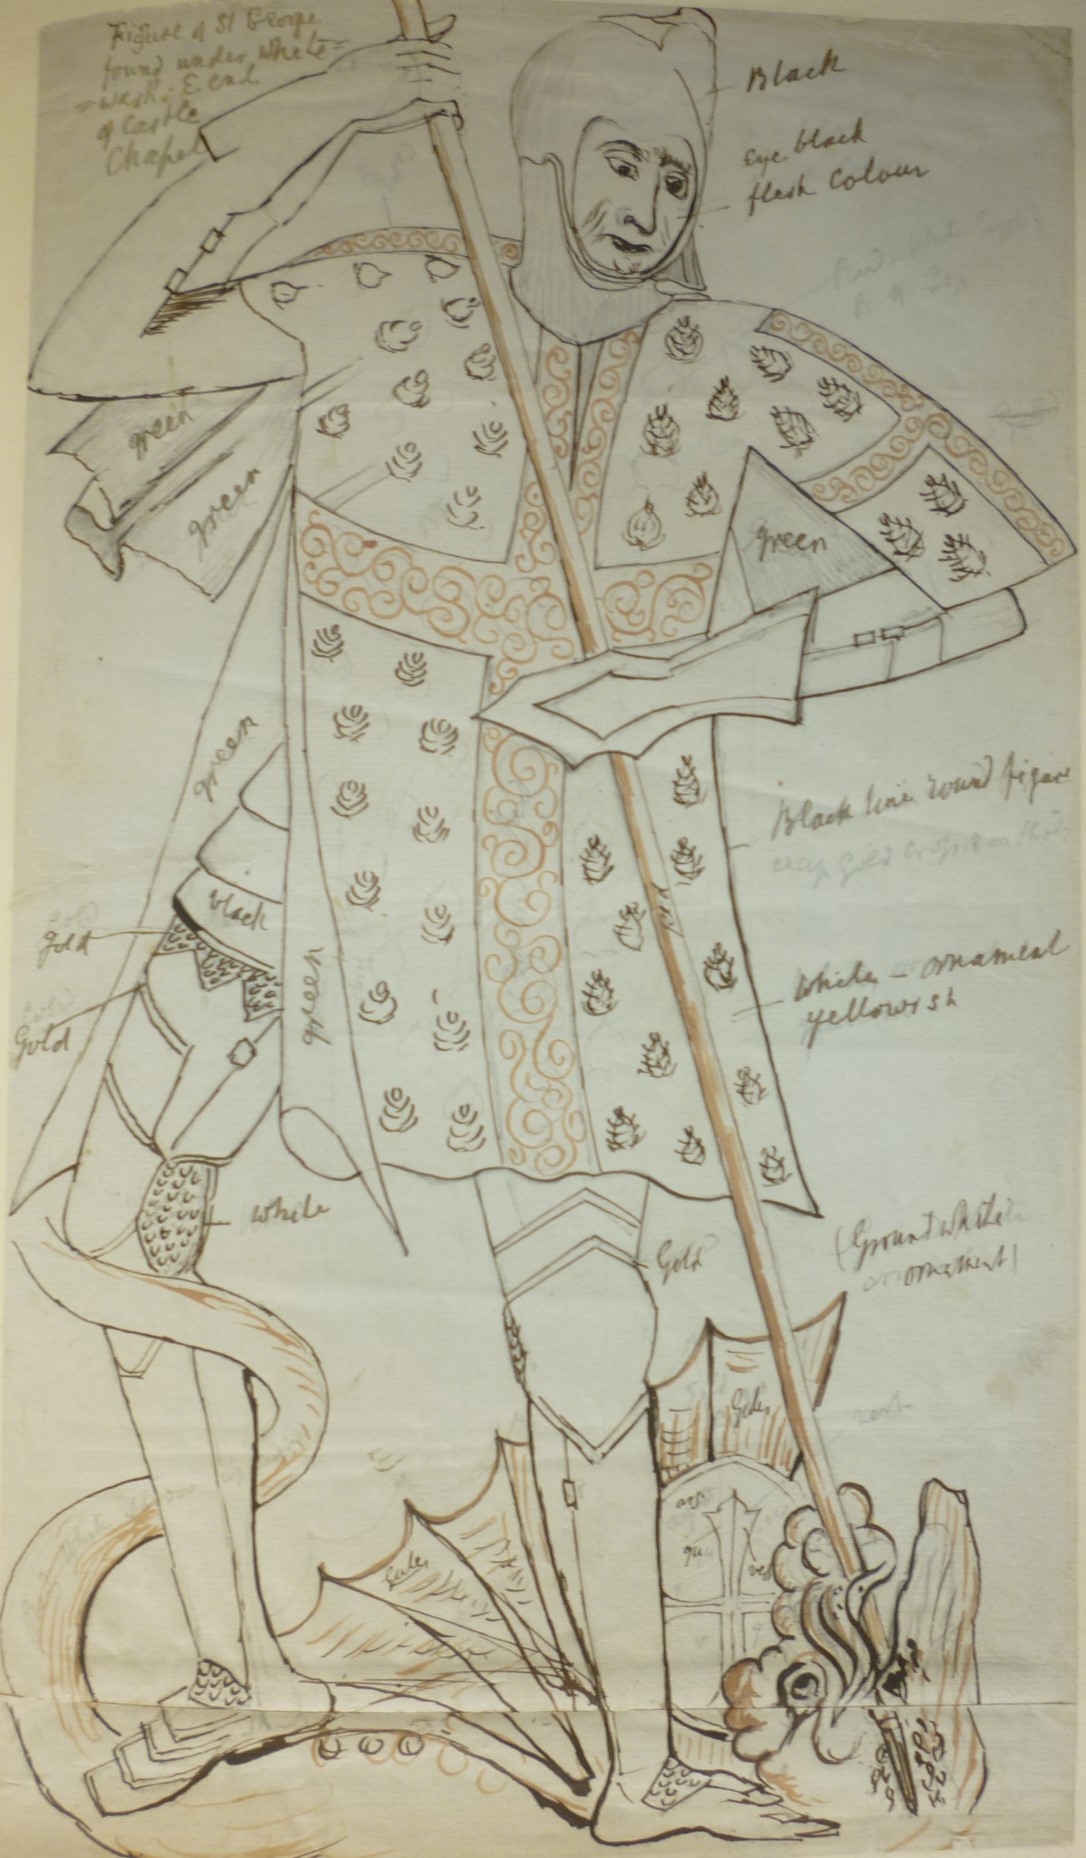 Figure of St George
found under white=
=wash. E end
of Castle
Chapel
Black
Eye black
flesh colour
green
green
green
green
black
gold
Gold
green
red
Black line round figure
white - ornament
yellowish
white
Gold
(Ground white
ornament)
Gules
Gules